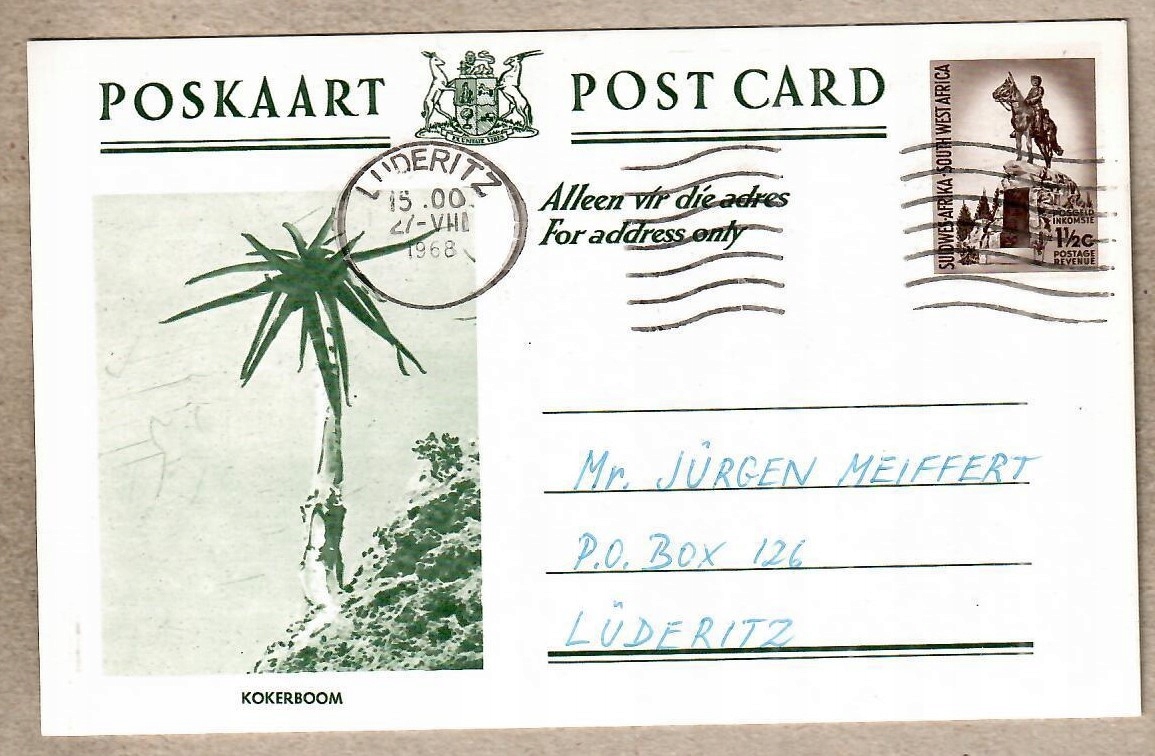 POSKAART
POST CARD
EX UNITATE VIRES
LÜDERITZ
15.00
1968
Alleen vir die adres
For address only
SUIDWES-AFRIKA·SOUTH WEST AFRICA
POSGELD
INKOMSTE
1½c
POSTAGE
REVENUE
Mr. JÜRGEN MEIFFERT
P.O. BOX 126
LÜDERITZ
KOKERBOOM